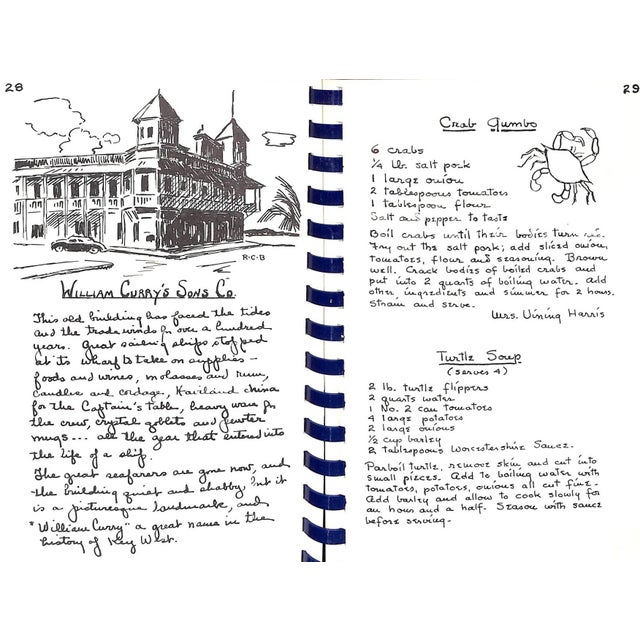 28
R-C-B
WILLIAM CURRY'S SONS CO.
This old building has faced the tides
and the trade winds for over a hundred
years. Great sailing ships stopped
at its wharf to take on supplies —
foods and wines, molasses and rum,
candles and cordage, Haviland china
for the Captain's table, heavy ware for
the crew, crystal goblets and pewter
mugs... all the gear that entered into
the life of a ship.
The great seafarers are gone now, and
the building quiet and shabby but it
is a picturesque landmark, and
"William Curry" a great name in the
history of Key West.
29
Crab Gumbo
6 crabs
¼ lb. salt pork
1 large onion
2 tablespoons tomatoes
1 tablespoon flour
Salt and pepper to taste
Boil crabs until their bodies turn red.
Fry out the salt pork; add sliced onion,
tomatoes, flour and seasoning. Brown
well. Crack bodies of boiled crabs and
put into 2 quarts of boiling water. Add
other ingredients and simmer for 2 hours.
Strain and serve.
Mrs. Vining Harris
Turtle Soup
(serves 4)
2 lb. turtle flippers
2 quarts water
1 No. 2 can tomatoes
4 large potatoes
2 large onions
½ cup barley
2 tablespoons Worcestershire Sauce.
Parboil turtle, remove skin and cut into
small pieces. Add to boiling water with
tomatoes, potatoes, onions all cut fine.
Add barley and allow to cook slowly for
an hour and a half. Season with sauce
before serving.